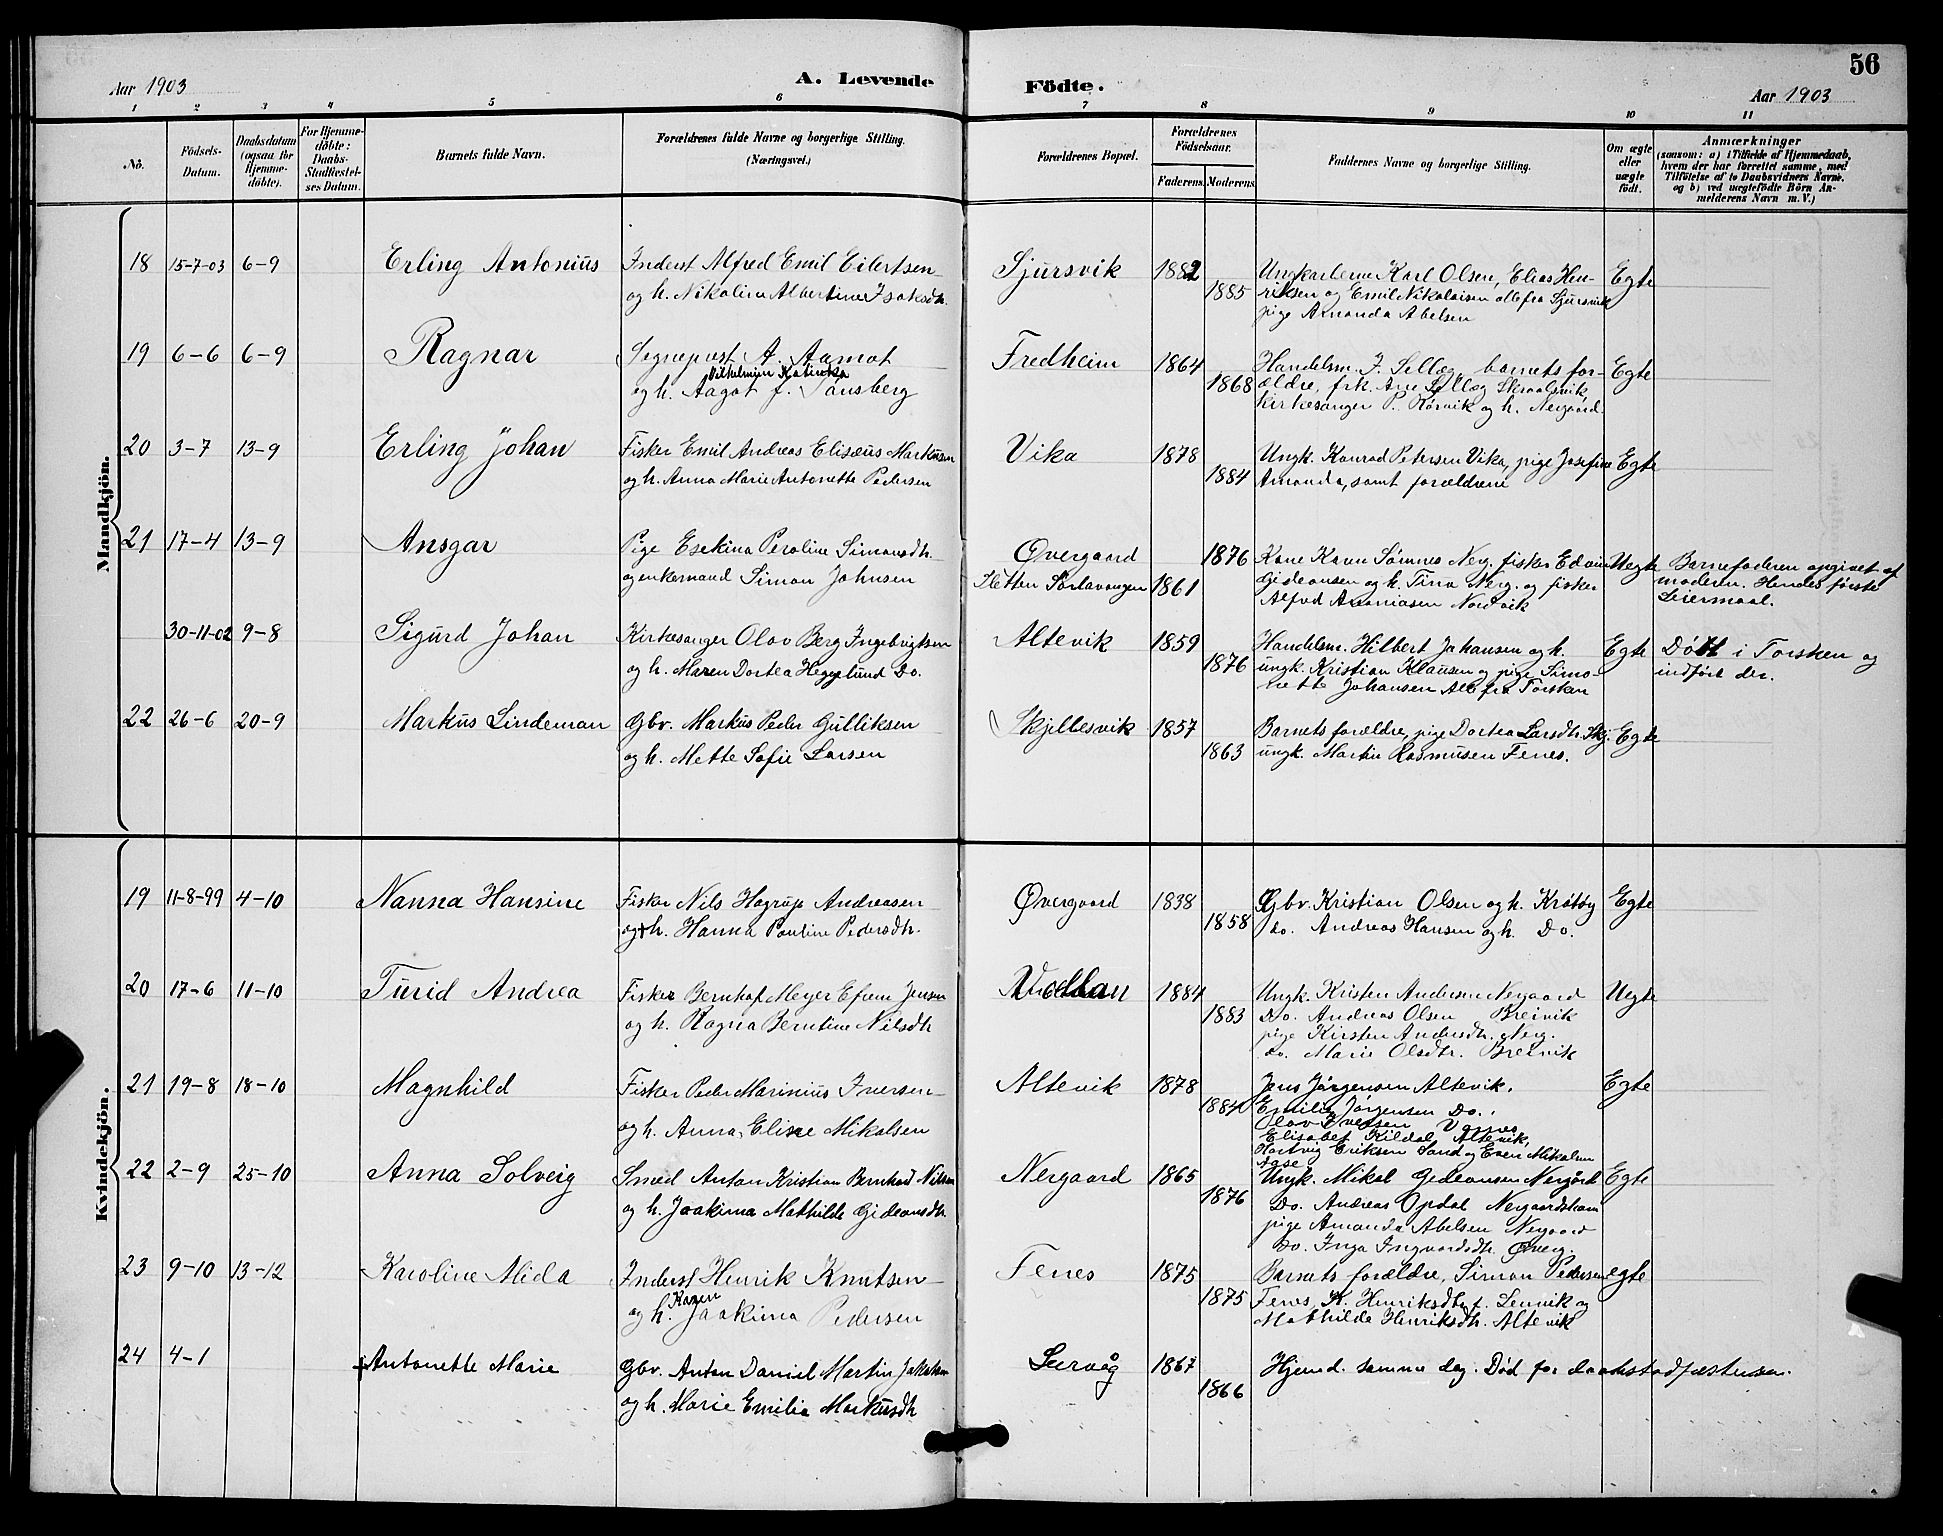 56
Aar 1903
A. Levende
Födte.
Aar 1903
1 2 3 4 5 6 7 8 9 10 11
No.
Födsels-
Datum.
Daabsdatum
(ogsaa for
Hjemme-
døbte).
For Hjemme-
døbte:
Daabs-
Stadfæstel-
ses Datum.
Barnets fulde Navn.
Forældrenes fulde Navne og borgerlige Stilling.
(Næringsvei.)
Forældrenes Bopæl.
Forældrenes
Födselsaar.
Faderens. Moderens.
Faddernes Navne og borgerlige Stilling.
Om ægte
eller
uægte
födt.
Anmærkninger
(saasom: a) i Tilfælde af Hjemmedaab,
hvem der har forrettet samme, med
Tilföielse af to Daabsvidners Navne.
og b) ved uægtefödte Börn An-
melderens Navn m. V.)
Mandkjön.
18 15-7-03 6-9 Erling Antonius Inderst Alfred Emil Eilertsen Sjursvik 1882 Ungkarlene Karl Olsen, Elias Hen- Egte
og h. Nikolina Albertine Isaksdtr. 1885 riksen og Emil Nikolaisen alle fra Sjursvik
pige Amanda Abelsen
19 6-6 6-9 Ragnar Sogneprest A. Aamot Fredheim 1864 Handelsm. J. Selläg, barnets for- Egte
Vilhelmine Katinka
og h. Aagot f. Tönsberg 1868 ældre, frk. Selläg Skraalsvik,
kirkesanger P. Rørvik og h. Nergaard.
20 3-7 13-9 Erling Johan Fisker Emil Andreas Elisæus Markusen Vika 1878 Ungk. Konrad Petersen Vika, pige Josefine Egte
og h. Anna Marie Antonette Pedersen 1884 Amanda, samt forældrene
21 17-4 13-9 Ansgar Pige Esekina Peroline Simonsdtr. Øvergaard 1876 Kone Karen Sømnes Nerg. fisker Edvin Uegte Barnefaderen opgivet af
og enkemand Simon Johnsen Sletten Sörlavangen 1861 Gideonsen og h. Tina Nerg. og fisker moderen. Hendes første
Alfred Ananiasen Nordvik Leiermaal.
30-11-02 9-8 Sigurd Johan Kirkesanger Olav Berg Ingebrigtsen Altevik 1859 Handelsm. Hilbert Johansen og h. Egte Døbt i Torsken og
og h. Maren Dortea Hegglund Do. 1876 ungk. Kristian Klausen og pige Simo- indført der.
nette Johansen Alle fra Torsken
22 26-6 20-9 Markus Lindeman Gbr. Markus Peder Gulliksen Skjellesvik 1857 Barnets forældre, pige Dortea Larsdtr. Skj. Egte
og h. Mette Sofie Larsen 1863 ungk. Martin Rasmusen Fenes.
Kvindekjön.
19 11-8-99 4-10 Nanna Hansine Fisker Nils Hagrup Andreasen Øvergaard 1838 Gbr. Kristian Olsen og h. Krøtøy Egte
og h. Hanna Pauline Pedersdtr. 1858 Do. Andreas Hansen og h. Do.
20 17-6 11-10 Turid Andrea Fisker Bernhof Meyer Efrem Jensen 1884 Ungk. Kristen Andersen Nergaard Uegte
og h. Ragna Berntine Nilsdtr. 1883 Do. Andreas Olsen Breivik
pige Kirsten Andersdtr. Nerg.
Do. Marie Olsdtr. Breivik
21 19-8 18-10 Magnhild Fisker Peder Marinius Iversen Altevik 1878 Jens Jørgensen Altevik. Egte
og h. Anna Elise Mikalsen 1884 Emilie Jørgensen Do.
Olav Iversen
Elisabet Kildal, Altevik,
Hartvig Eriksen Sand og Even Mikalsen
22 2-9 25-10 Anna Solveig Smed Anton Kristian Bernhard Nilsen Nergaard 1865 Ungk. Mikal Gideonsen Nergård Egte
og h. Joakima Mathilde Gideonsdtr. 1876 Do. Andreas Opdal Nergaardshavn
pige Amanda Abelsen Nergaard
Do. Inga Ingvardsdtr. Øverg.
23 9-10 13-12 Karoline Alida Inderst Henrik Knutsen Fenes 1875 Barnets forældre, Simon Pedersen egte
Karen
og h. Joakima Pedersen 1875 Fenes, K. Henriksdtr. f. Lenvik og
Mathilde Henriksdtr. Altevik
24 4-1 Antonette Marie Gbr. Anton Daniel Martin Jakobsen Leervåg 1867 Hjemd. samme dag. Død før daabstadfæstelsen.
og h. Marie Emilie Markusdtr. 1866